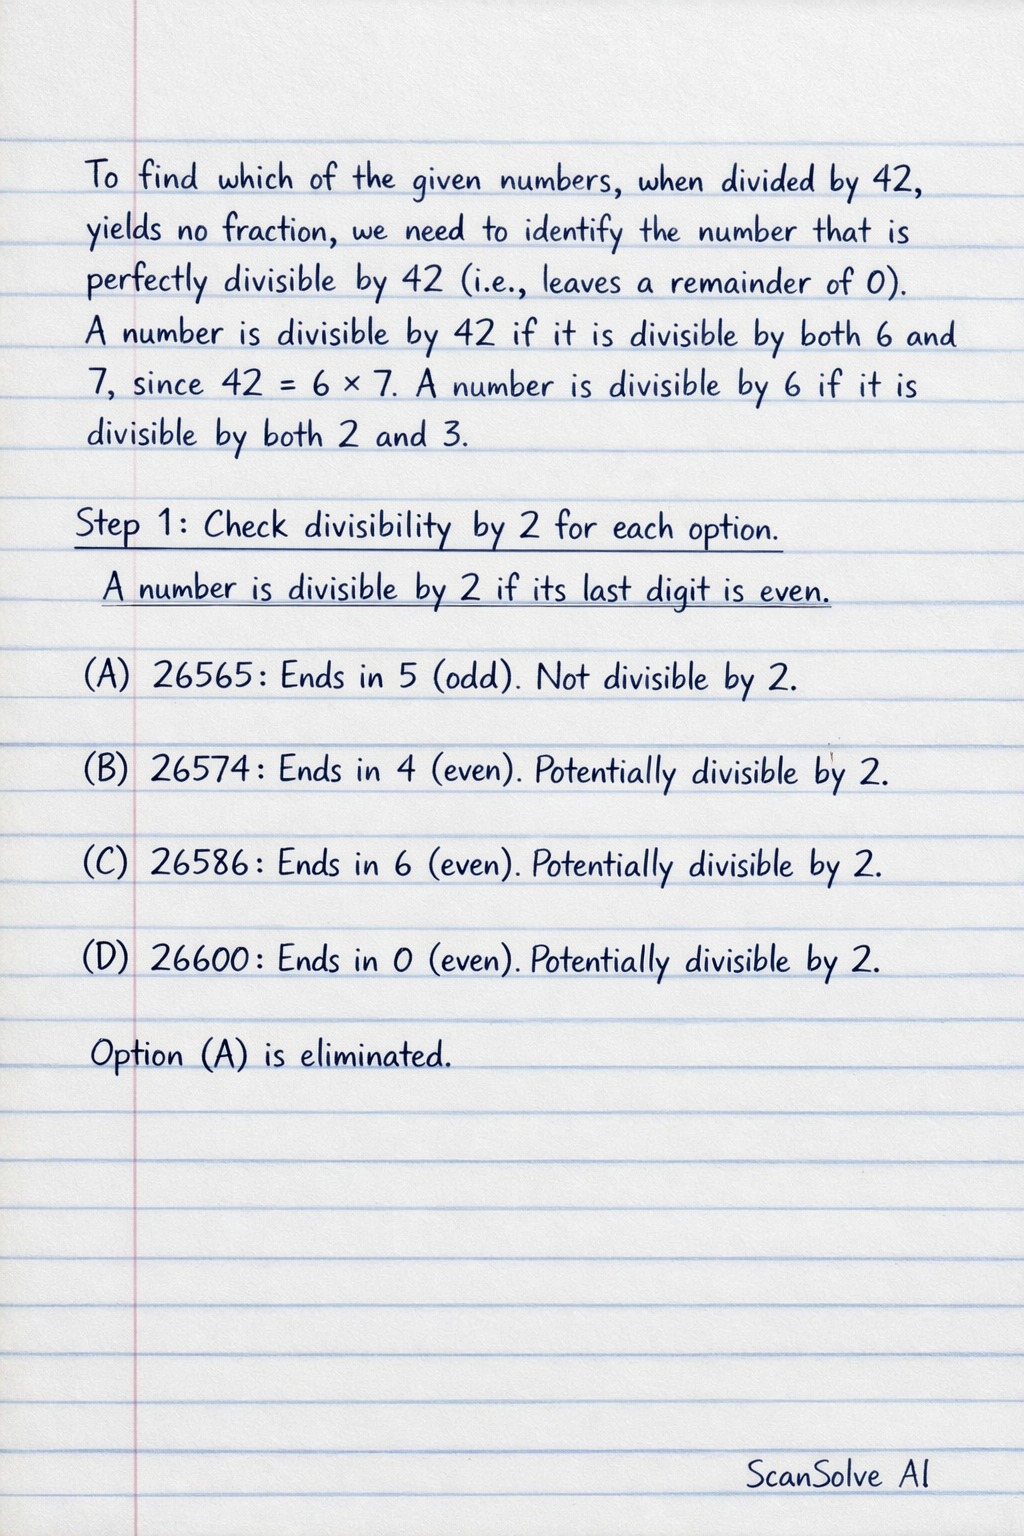 To find which of the given numbers, when divided by 42,
yields no fraction, we need to identify the number that is
perfectly divisible by 42 (i.e., leaves a remainder of 0).
A number is divisible by 42 if it is divisible by both 6 and
7, since 42 = 6 × 7. A number is divisible by 6 if it is
divisible by both 2 and 3.
Step 1: Check divisibility by 2 for each option.
A number is divisible by 2 if its last digit is even.
(A) 26565: Ends in 5 (odd). Not divisible by 2.
(B) 26574: Ends in 4 (even). Potentially divisible by 2.
(C) 26586: Ends in 6 (even). Potentially divisible by 2.
(D) 26600: Ends in 0 (even). Potentially divisible by 2.
Option (A) is eliminated.
ScanSolve AI